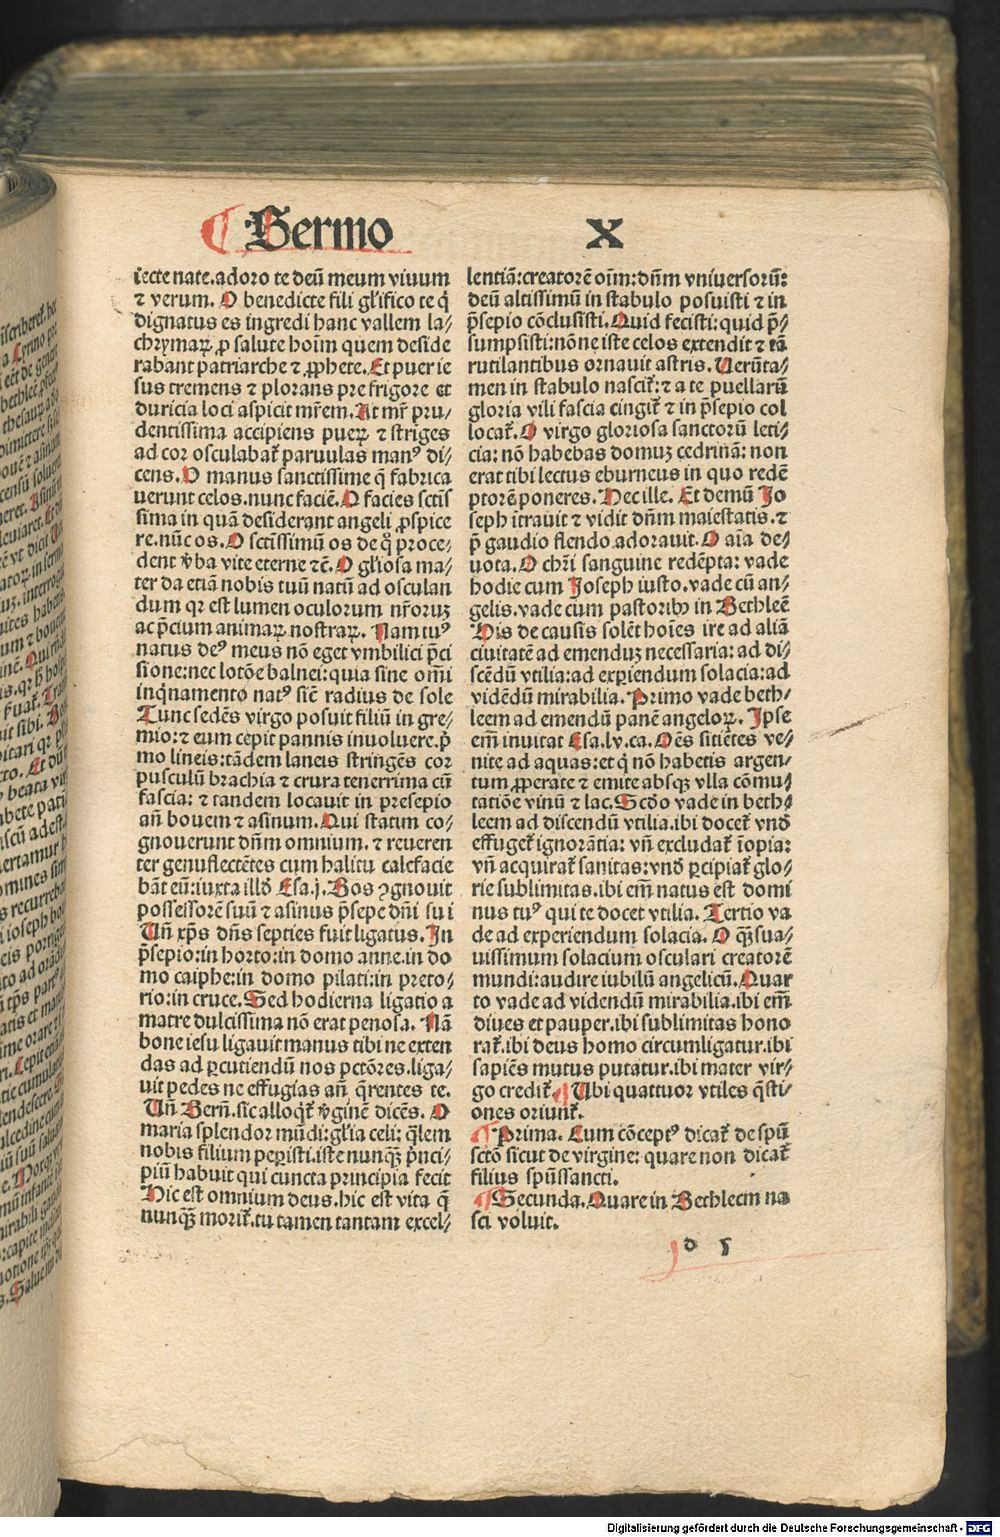 Sermo X
iecte nate.adoro te deū meum viuum
⁊ verum. O benedicte fili gl̄ifico te q̇
dignatus es ingredi hanc vallem la⸗
chrymaꝝ ꝓ salute hoīm quem deside
rabant patriarche ⁊ ꝓphete. Et puer ie
sus tremens ⁊ plorans pre frigore et
duricia loci aspicit mr̄em. At mr̄ pru⸗
dentissima accipiens pueꝝ ⁊ strīges
ad cor osculabat᷑ paruulas manꝰ di⸗
cens. O manus sanctissime q̄ fabrica
uerunt celos.nunc faciē. O facies sctīs
sima in quā desiderant angeli ꝓspice
re.nūc os. O sctīssimū os de q̊ proce⸗
dent v̄ba vite eterne ⁊c̄. O gl̄iosa ma⸗
ter da etiā nobis tuū natū ad osculan
dum qr est lumen oculorum nr̄oruꝫ
ac p̄cium animaꝝ nostraꝝ. Nam tuꝰ
natus deꝰ meus nō eget vmbilici p̄ci
sione:nec lotōe balnei: quia sine om̄i
inq̇namento natꝰ siē radius de sole
Tunc sedēs virgo posuit filiū in gre⸗
mio:⁊ eum cepit pannis inuoluere.p̄
mo lineis:tādem laneis stringēs cor
pusculū brachia ⁊ crura tenerrima cū
fascia: ⁊ tandem locauit in presepio
an̄ bouem ⁊ asinum. Qui statim co⸗
gnouerunt dn̄m omnium. ⁊ reueren
ter genuflectētes cum halitu calefacie
bāt eū:iuxta illd̄ Esa.j. Bos ꝯgnouit
possessorē suū ⁊ asinus p̄sepe dn̄i sui
Un̄ xp̄s dn̄s septies fuit ligatus. In
p̄sepio:in horto:in domo anne.in do
mo caiphe:in domo pilati:in preto⸗
rio:in cruce. Sed hodierna ligatio a
matre dulcissima nō erat penosa. Nā
bone iesu ligauit manus tibi ne exten
das ad ꝑcutiendū nos pctōres.liga⸗
uit pedes ne effugias an̄ q̄rentes te.
Un̄ Bern̄.sic alloq̇t᷑ v̓ginē dicēs. O
maria splendor mūdi:gl̄ia celi: q̄lem
nobis filium peꝑisti.iste nunqꝫ p̄nci⸗
piū habuit qui cuncta principia fecit
Hic est omnium deus.hic est vita q̄
nunqꝫ morit᷑.tu tamen tantam excel⸗
lentiā:creatorē oīm:dn̄m vniuersorū:
deū altissimū in stabulo posuisti ⁊ in
p̄sepio cōclusisti. Quid fecisti:quid p̄⸗
sumpsisti:nōne iste celos extendit ⁊ eā
rutilantibus ornauit astris. Uerūta⸗
men in stabulo nascit᷑:⁊ a te puellarū
gloria vili fascia cingit᷑ ⁊ in p̄sepio col
locat᷑. O virgo gloriosa sanctorū leti⸗
cia: nō habebas domuꝫ cedrinā: non
erat tibi lectus eburneus in quo redē
ptorē poneres. Hec ille. Et demū Jo
seph ītrauit ⁊ vidit dn̄m maiestatis.⁊
p̄ gaudio flendo adorauit. O aīa de⸗
uota. O chr̄i sanguine redēpta: vade
hodie cum Joseph iusto.vade cū an⸗
gelis.vade cum pastoribꝰ in Bethleē
His de causis solēt hoīes ire ad aliā
ciuitatē ad emenduꝫ necessaria: ad di⸗
scēdū vtilia:ad exꝑiendum solacia:ad
vidēdū mirabilia. Primo vade beth⸗
leem ad emendū panē angeloꝝ. Ipse
em̄ inuitat Esa.lv.ca. Oēs sitiētes ve⸗
nite ad aquas:et q̇ nō habetis argen⸗
tum ꝓperate ⁊ emite absqꝫ vlla cōmu⸗
tatiōe vinū ⁊ lac. Scd̄o vade in beth⸗
leem ad discendū vtilia.ibi docet᷑ vnd̄
effuget᷑ ignorātia: vn̄ excludat᷑ īopia:
vn̄ acquirat᷑ sanitas: vnd̄ ꝑcipiat᷑ glo⸗
rie sublimitas.ibi em̄ natus est domi
nus tuꝰ qui te docet vtilia. Tertio va
de ad experiendum solacia. O qꝫ sua⸗
uissimum solacium osculari creatorē
mundi:audire iubilū angelicū. Quar
to vade ad videndū mirabilia.ibi em̄
diues et pauper.ibi sublimitas hono
rat᷑.ibi deus homo circumligatur.ibi
sapiēs mutus putatur.ibi mater vir⸗
go credit᷑. ¶ Ubi quattuor vtiles q̄sti⸗
ones oriunt᷑.
¶ Prima. Cum cōceptꝰ dicat᷑ de spū
sctō sicut de virgine: quare non dicat᷑
filius spūssancti.
¶ Secunda. Quare in Bethleem na
sci voluit.
d 5
Digitalisierung gefördert durch die Deutsche Forschungsgemeinschaft - DFG